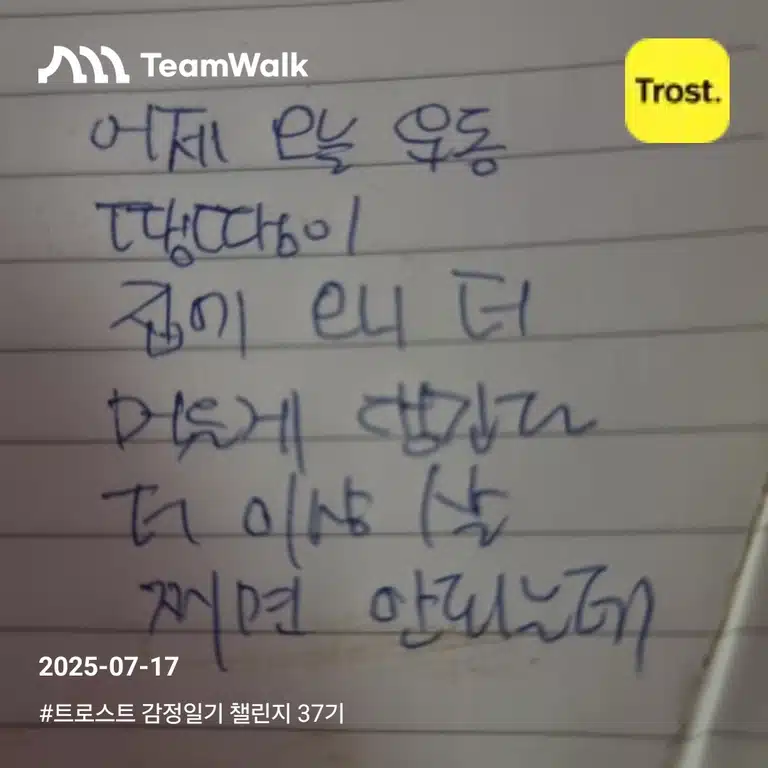 TeamWalk
Trost.
어제 오늘 운동
땡땡이
집에 오니 더
먹는게 땡긴다
더 이상 살
찌면 안되는데
2025-07-17
#트로스트 감정일기 챌린지 37기